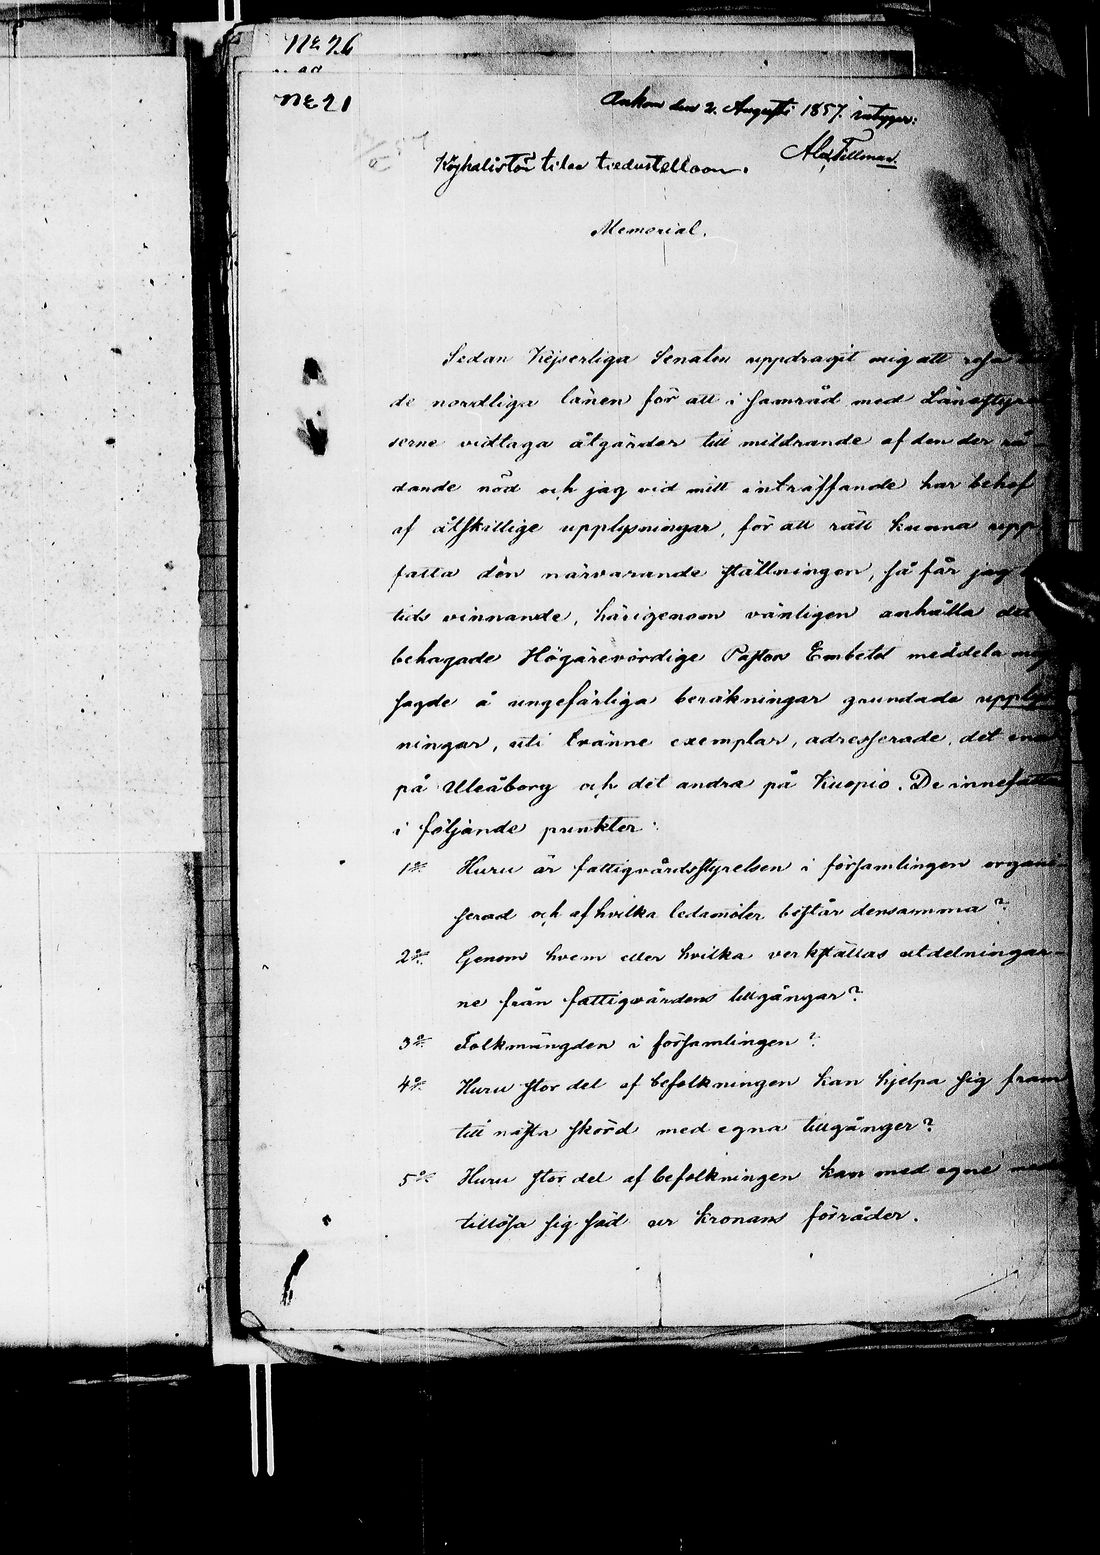 № 26
№ 21
Ankom den 2. Augusti 1857. intygar:
Alex Tillman
Köyhalistön tilaa tiedustellaan.
Memorial.
Sedan Kejserliga Senaten uppdragit mig att resa
de nordliga länen för att i samråd med Länsstyrel
serne vidtaga åtgärder till mildrande af den der rå-
dande nöd och jag vid mitt inträffande har behof
af åtskillige upplysningar, för att rätt kunna upp
fatta den närvarande ställningen, så får jag
tids vinnande, härigenom vänligen anhålla det
behagade Högärevördige Pastors Embetet meddela mig
sagde å ungefärliga beräkningar grundade upplys
ningar, uti tvänne exemplar, adresserade, det ena
på Uleåborg och det andra på Kuopio. De innefatta
i följande punkter:
1:o Huru är fattigvårdsstyrelsen i församlingen organi-
serad och af hvilka ledamöter består densamma?
2:o Genom hvem eller hvilka verkställas utdelningar-
ne från fattigvårdens tillgångar?
3:o Folkmängden i församlingen?
4:o Huru stor del af befolkningen kan hjelpa sig fram
till nästa skörd med egna tillgånger?
5:o Huru stor del af befolkningen kan med egne medel
tillösa sig säd ur kronans förråder.